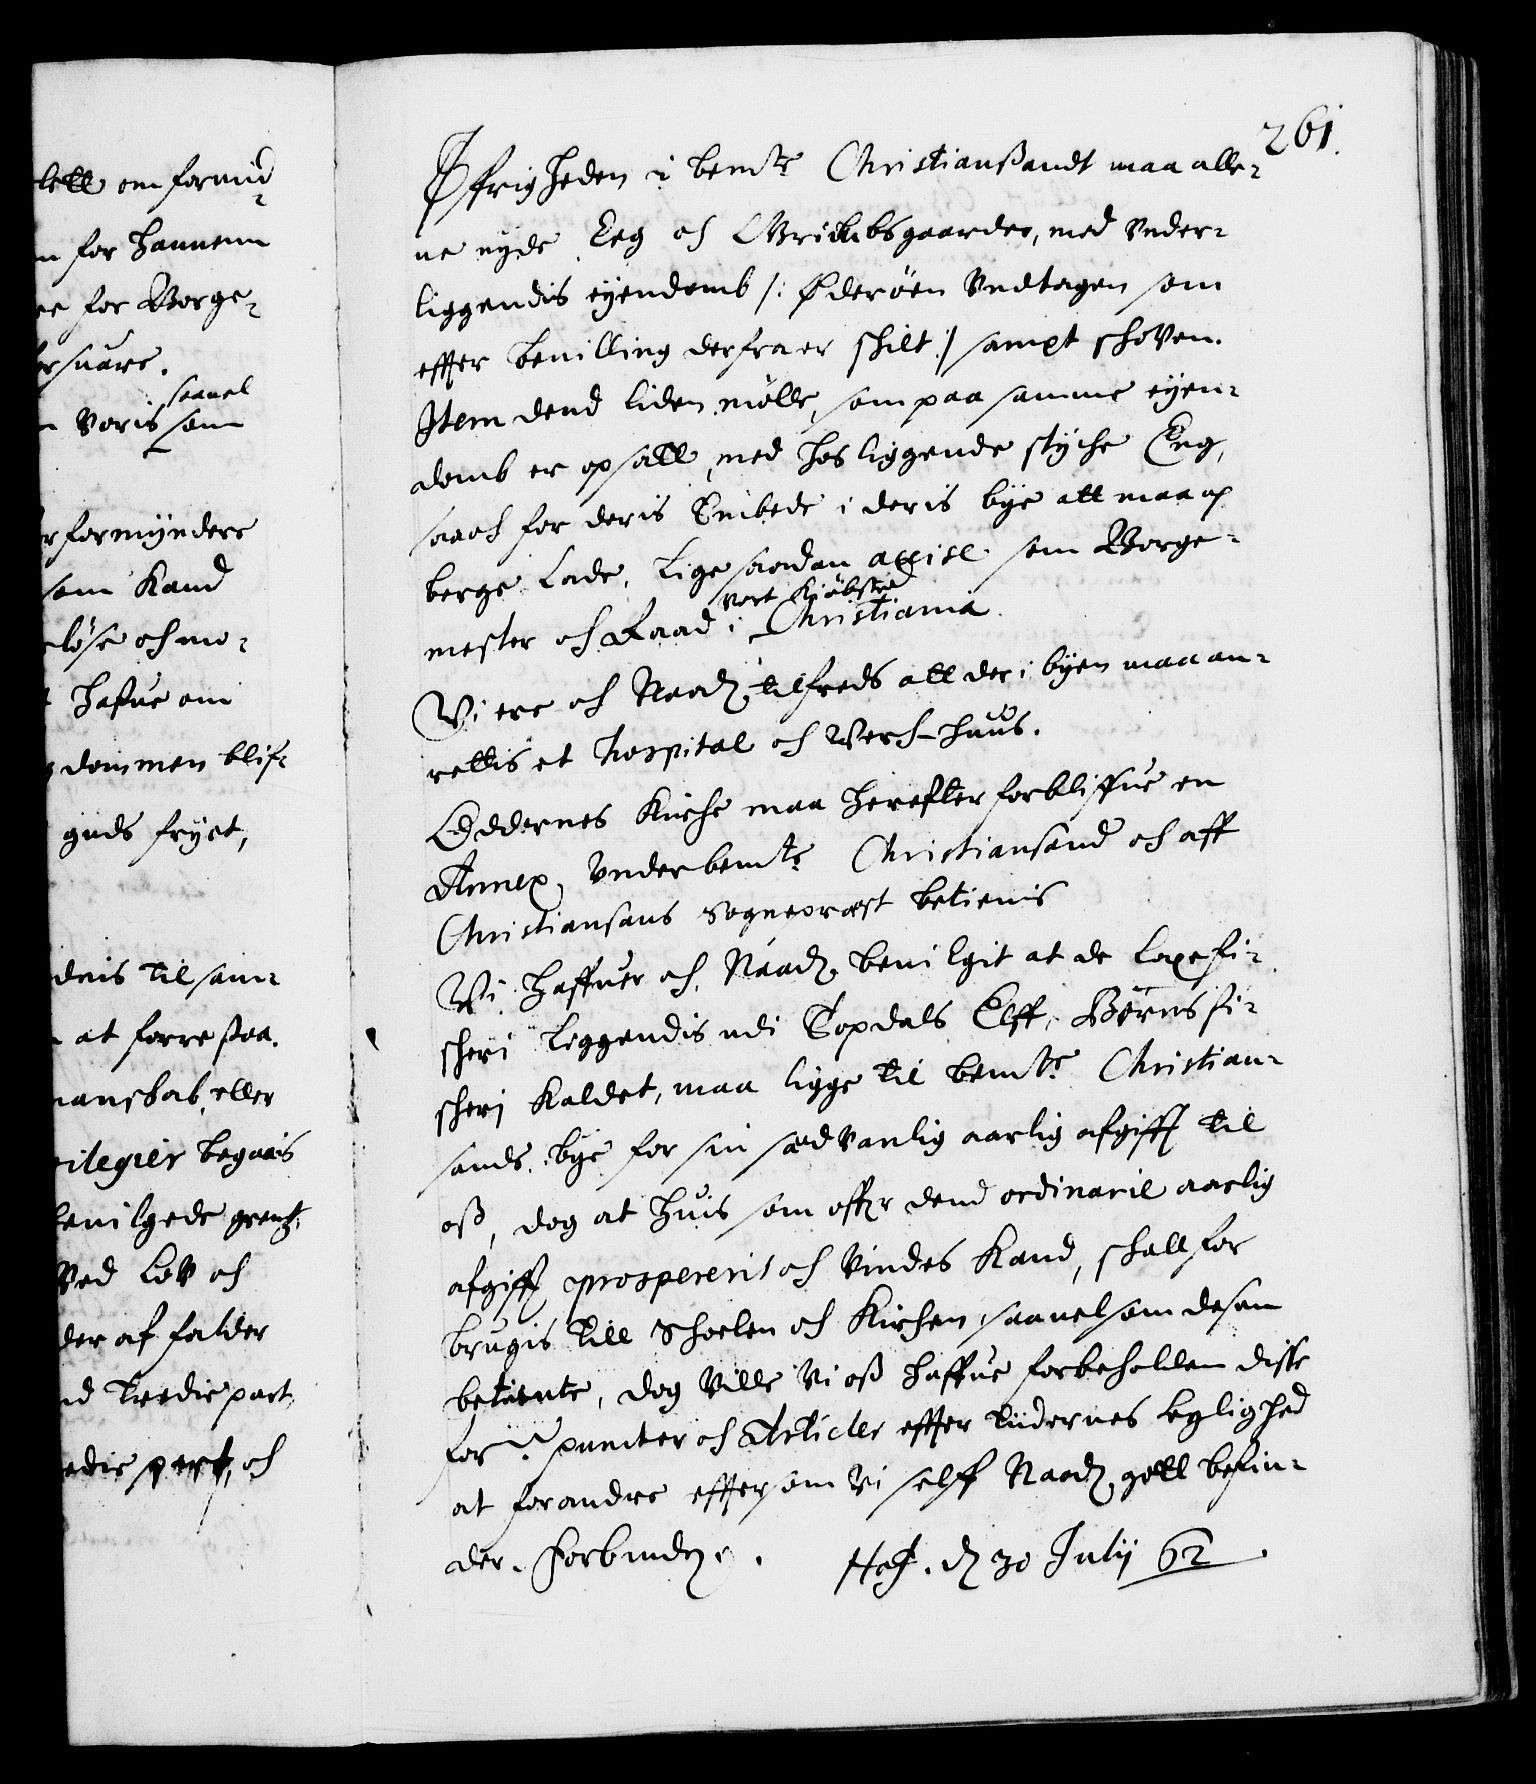 lett om formid
n for hannem
re for Borge-
rsuare.
saauel
n Voris som
rformyndere
som kand
løse och mo-
t hafue om
gdommen blif-
guds fryct,
dnis til sam-
n at forrestaa.
nanskab, eller
vilegier begaais
beuilgede grentz.
ved lov och
der af falder
nd tredie part,
edie part, och
261.
Øfrigheden i bemte Christianßandt maa alle-
ne nyde Eeg och Grimbsgaarder, med Vnder-
liggendis eyendomb /: Øderøen Vndtagen som
effter beuilling derfra er skilt :/ sampt skoven.
Item dend liden mølle, som paa samme eyen-
domb er opsatt, med hosligggende stycke Eng,
saa och for deris Embede i deris bye att maa op
berge lade, lige saadan accise som Borge-
vort kiøbsted
mester och Raad i Christiania.
Vi ere och Naadt tilfreds att der i byen maa an-
rettis et hospital och Verck-huus.
Oddernes Kircke maa herefter forbliffue en
Annex, Vnder bemte Christiansand och aff
Christiansans Sogneprest betienis
Vi haffuer och Naadt beuilgit at de laxefi-
skeri liggendis udi Topdals Elff, Børns fi-
skeri kaldet, maa ligge til bemte Christian-
sands bye for sin sædvanlig aarlig afgifft til
oß, dog at huis som offuer dend ordinarie aarlig
afgifft prospererit och vindes kand, skall for
brugis till Skoelen och Kircken, saauelsom desen
betiente, dog ville vi oß haffue forbeholden disse
forne puncter och Articler effter tiidernes leylighed
at forandre effter som Vi self Naadt gott befin-
der. Forbindz etc. Haf. d 30 Julij 62.